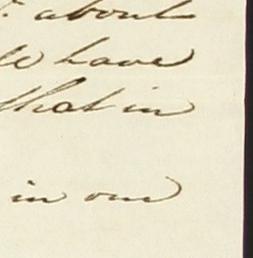 about
have
that in
in our